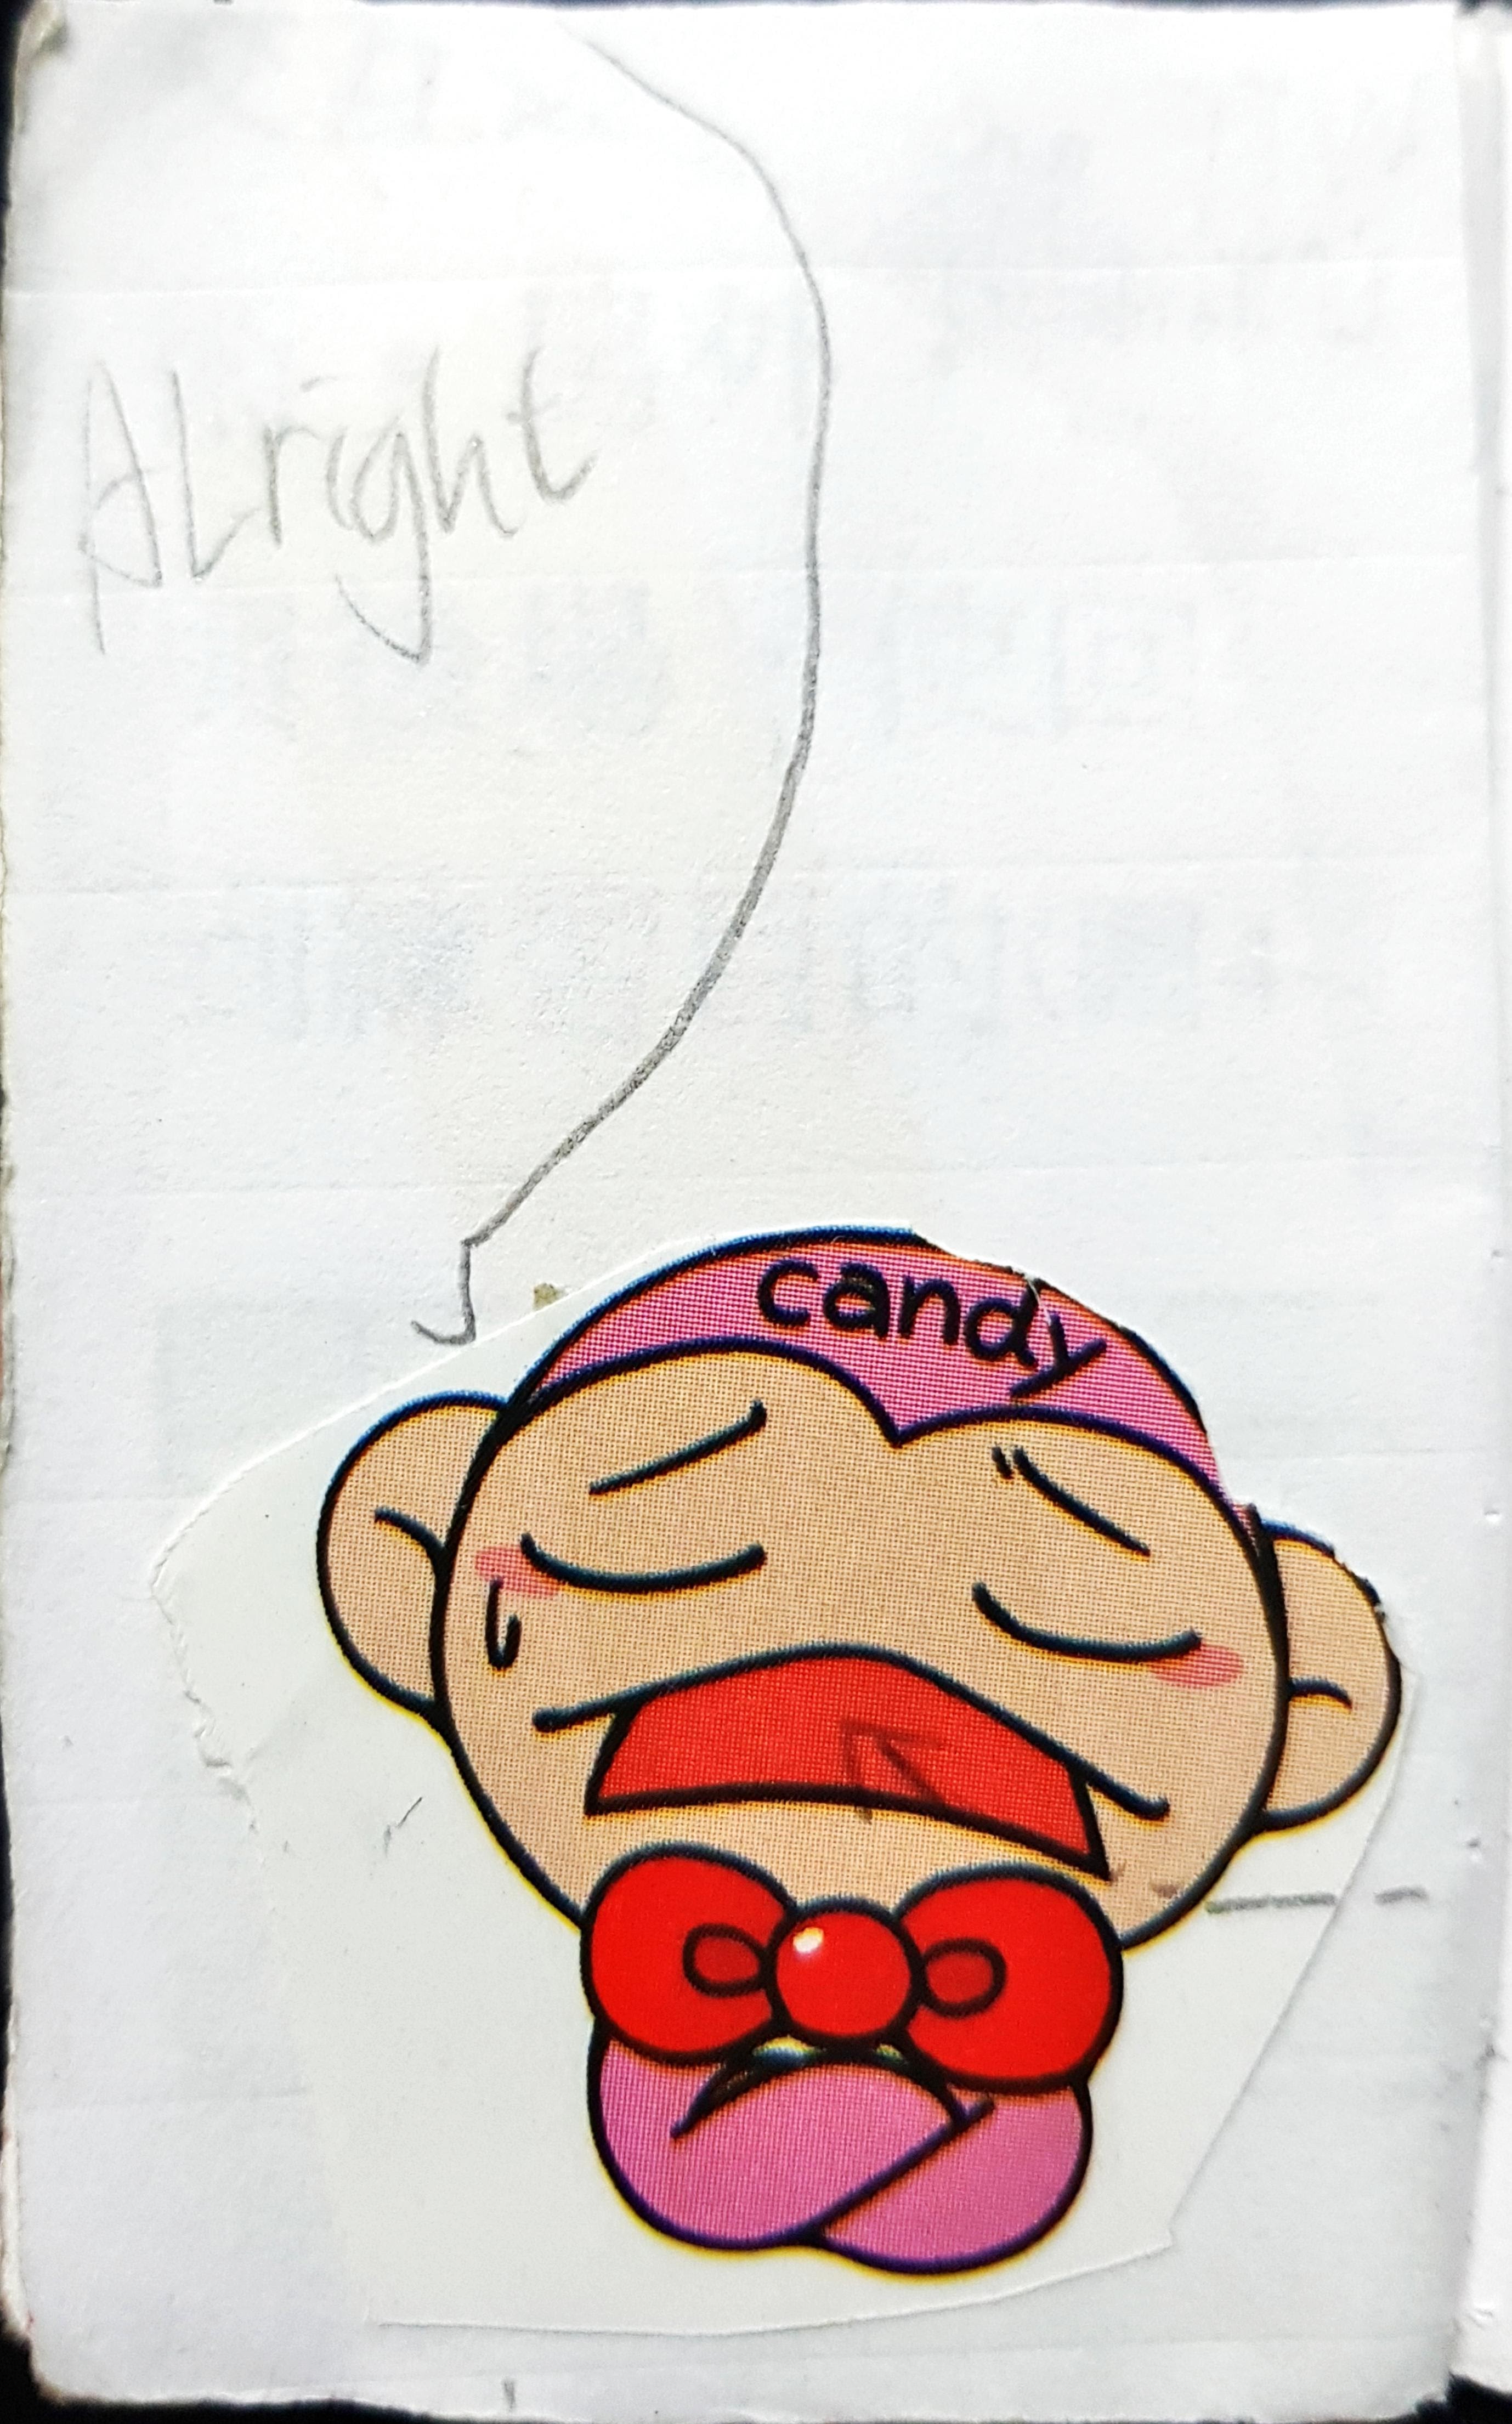 ALright
candy